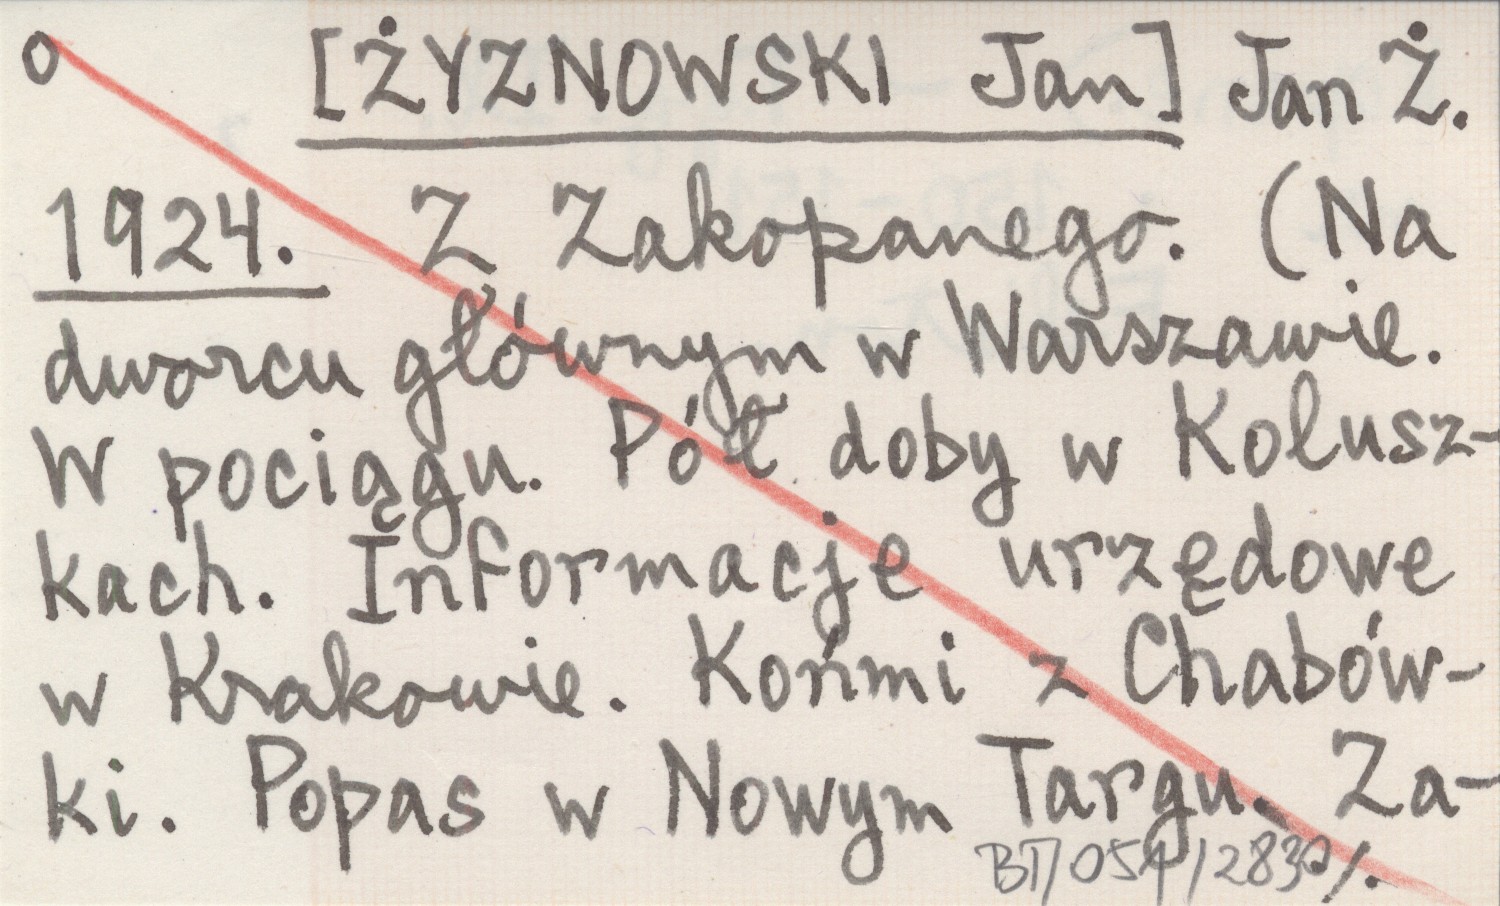 o [ŻYZNOWSKI Jan] Jan Ż.
1924. Z Zakopanego. (Na
dworcu głównym w Warszawie.
W pociągu. Pół doby w Kolusz-
kach. Informacje urzędowe
w Krakowie. Końmi z Chabów-
ki. Popas w Nowym Targu. Za-